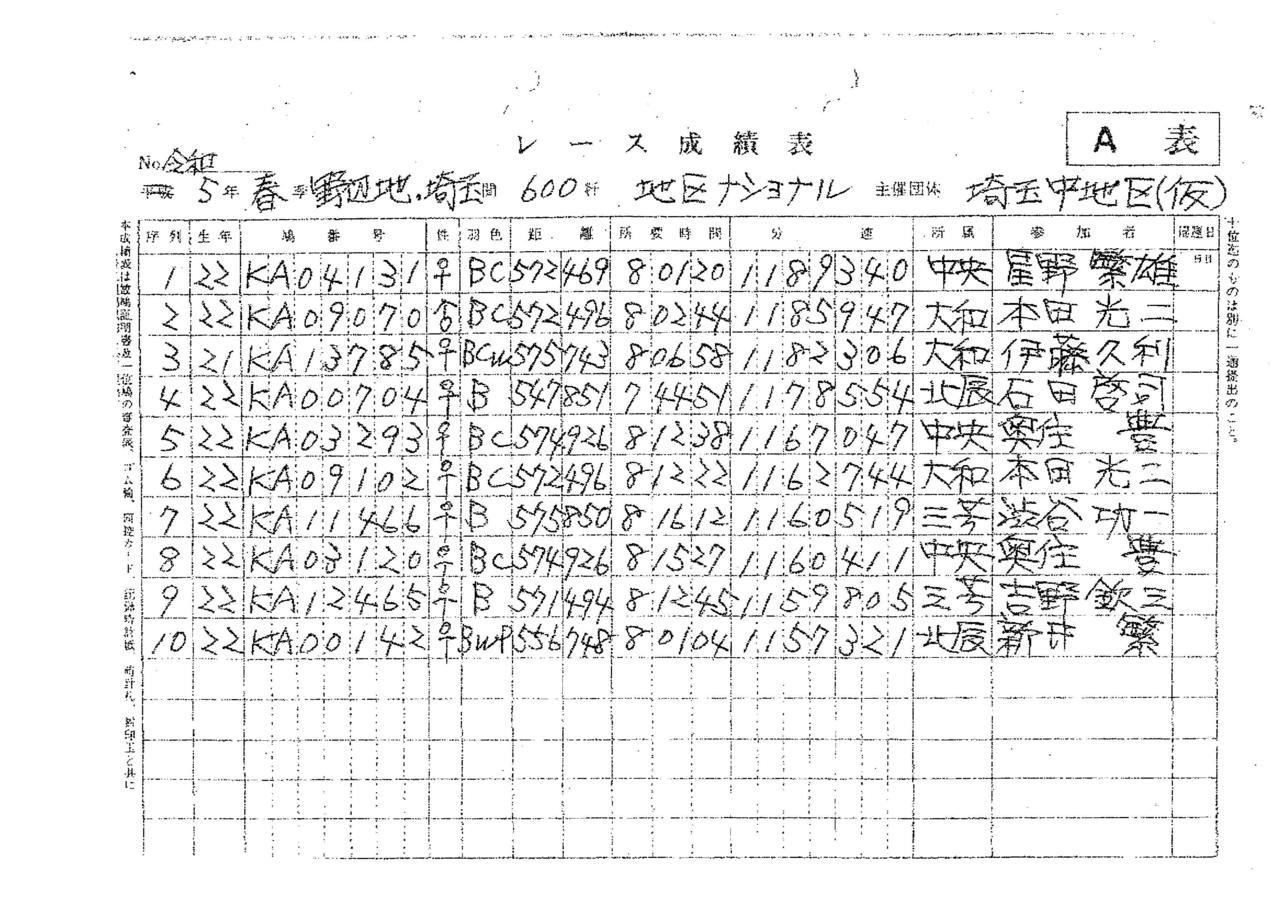 レース成績表
A 表
No.
令和
平成 5年 春季 野辺地・埼玉間 600粁 地区ナショナル 主催団体 埼玉中地区(仮)
序列 生年 鳩番号 性 羽色 距離 所要時間 分速 所属 参加者
1 22 KA04131 ♀ BC 572469 80120 1189340 中央 星野繁雄
2 22 KA09070 ♂ BC 572496 80244 1185947 大和 本田光二
3 21 KA13785 ♀ BCW 575743 80658 1182306 大和 伊藤久利
4 22 KA00704 ♀ B 547851 74451 1178554 北辰 石田啓
5 22 KA03293 ♀ BC 574926 81238 1167047 中央 奥住豊
6 22 KA09102 ♀ BC 572496 81222 1162744 大和 本田光二
7 22 KA11466 ♀ B 575850 81612 1160519 三芳 渋谷功一
8 22 KA03120 ♀ BC 574926 81527 1160411 中央 奥住豊
9 22 KA12465 B 571494 81245 1159805 三芳 吉野欽三
10 22 KA00142 ♀ BWP 556748 80104 1157321 北辰 新井繁
十位迄のものは別に一通提出のこと。